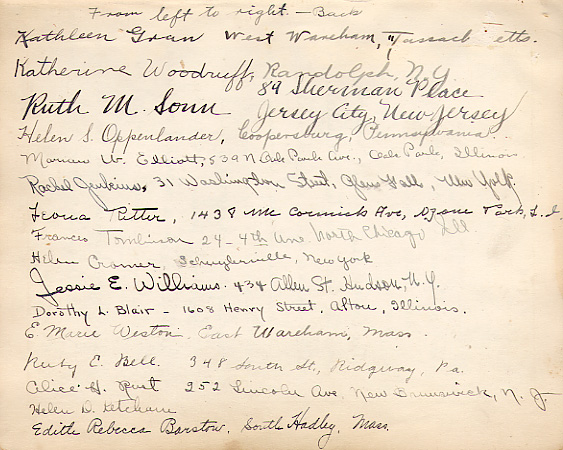 From left to right. - Back
Kathleen Gran West Wareham, Massachusetts.
Katherine Woodruff, Randolph, N.Y.
Ruth M. Sonn 89 Sherman Place
Jersey City, New Jersey
Helen S. Oppenlander, Coopersburg, Pennsylvania.
W. Elliott, 539 N. Oak Park Ave., Oak Park, Illinois
Rachel Jenkins, 31 Washington Street, Glens Falls, New York.
Leona Ritter, 1438 Mc Cormick Ave, Ozone Park, L.I.
Frances Tomlinson 24-4th Ave. North Chicago Ill.
Helen Cromer, Schuylerville, New York
Jessie E. Williams. 434 Allen St. Hudson, N.Y.
Dorothy L. Blair - 1608 Henry Street, Alton, Illinois.
E. Marie Weston, East Wareham, Mass.
Ruby E. Bell. 348 South St., Ridgway, Pa.
Alice H. 252 Lincoln Ave, New Brunswick, N.J.
Helen D. Ketcham
Edith Rebecca Barstow, South Hadley, Mass.